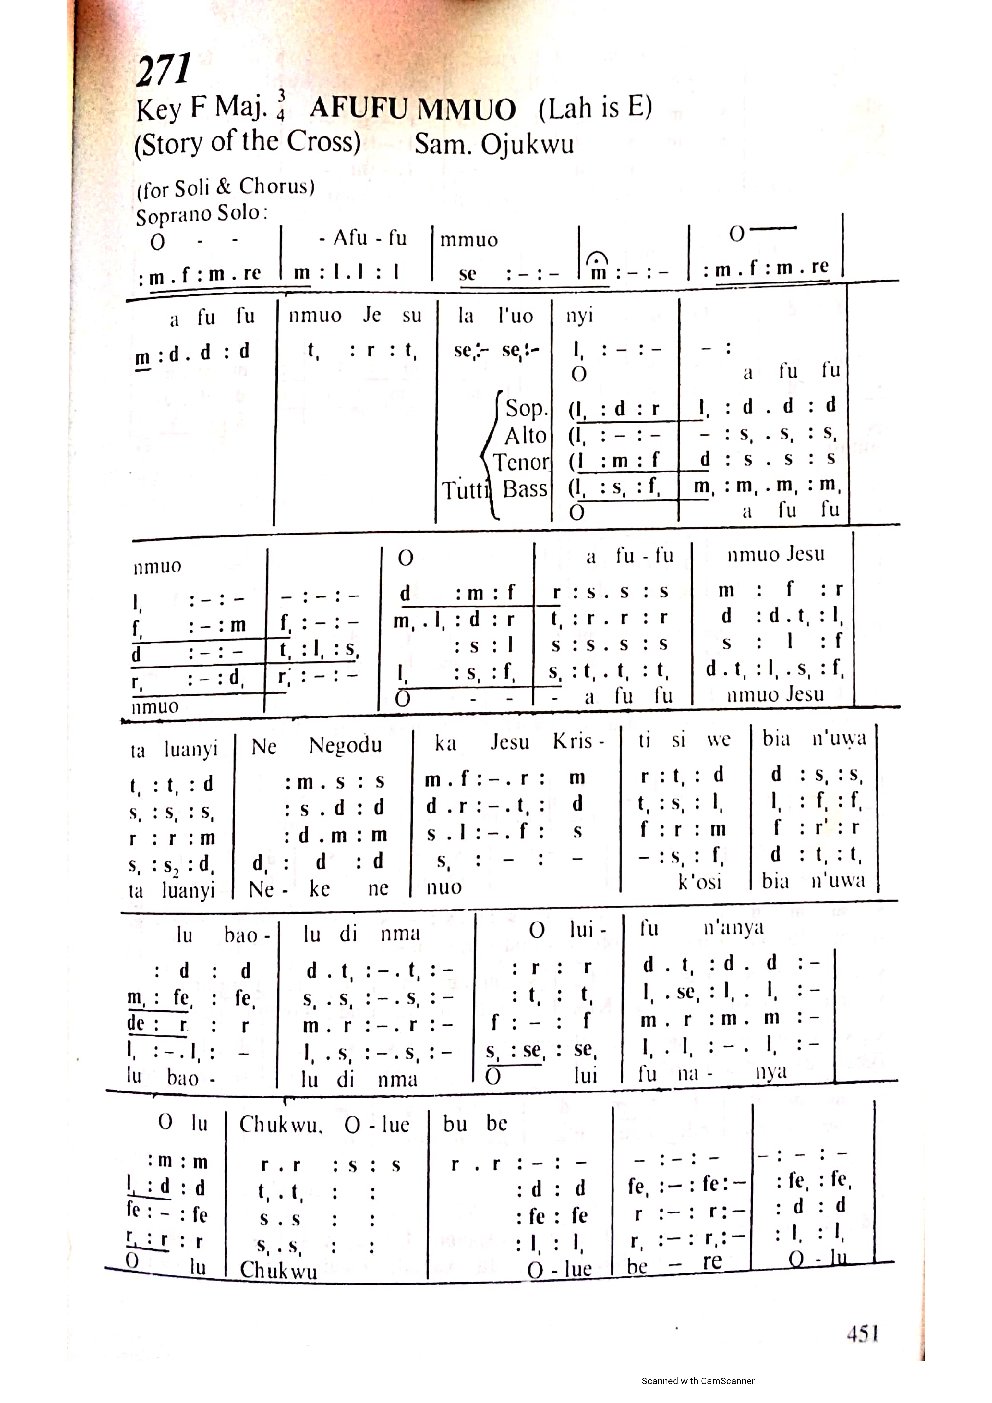 271
Key F Maj. 3/4 AFUFU MMUO (Lah is E)
(Story of the Cross) Sam. Ojukwu
(for Soli & Chorus)
Soprano Solo:
O - - - Afu - fu mmuo O——
: m . f : m . re | m : l . l : l | se : – : – | m : – : – | : m . f : m . re |
a fu fu nmuo Je su la l'uo nyi
m : d . d : d | t, : r : t, | se, :- se, :- | l, : – : – | – :
O a fu fu
Sop. (l, : d : r | l, : d . d : d
Alto (l, : – : – | – : s, . s, : s,
Tenor (l : m : f | d : s . s : s
Tutti Bass (l, : s, : f, | m, : m, . m, : m,
O a fu fu
nmuo O a fu - fu nmuo Jesu
l, : – : – | – : – : – | d : m : f | r : s . s : s | m : f : r
f, : – : m | f, : – : – | m, . l, : d : r | t, : r . r : r | d : d . t, : l,
d : – : – | t, : l, : s, | : s : l | s : s . s : s | s : l : f
r, : – : d, | r, : – : – | l, : s, : f, | s, : t, . t, : t, | d . t, : l, . s, : f,
nmuo O - - - a fu fu nmuo Jesu
ta luanyi Ne Negodu ka Jesu Kris - ti si we bia n'uwa
t, : t, : d | : m . s : s | m . f : – . r : m | r : t, : d | d : s, : s,
s, : s, : s, | : s . d : d | d . r : – . t, : d | t, : s, : l, | l, : f, : f,
r : r : m | : d . m : m | s . l : – . f : s | f : r : m | f : r' : r
s, : s₂ : d, | d, : d : d | s, : – : – | – : s, : f, | d : t, : t,
ta luanyi Ne - ke ne nuo k'osi bia n'uwa
lu bao - lu di nma O lui - fu n'anya
: d : d | d . t, : – . t, : – | : r : r | d . t, : d . d : –
m, : fe, : fe, | s, . s, : – . s, : – | : t, : t, | l, . se, : l, . l, : –
de : r : r | m . r : – . r : – | f : – : f | m . r : m . m : –
l, : – . l, : – | l, . s, : – . s, : – | s, : se, : se, | l, . l, : – . l, : –
lu bao - lu di nma O lui fu na - nya
O lu Chukwu, O - lue bu be
: m : m | r . r : s : s | r . r : – : – | – : – : – | – : – : –
l, : d : d | t, . t, : : | : d : d | fe, : – : fe : – | : fe, : fe,
fe : – : fe | s . s : : | : fe : fe | r : – : r : – | : d : d
r, : r : r | s, . s, : : | : l, : l, | r, : – : r, : – | : l, : l,
O lu Chukwu O - lue be – re O - lu
451
Scanned with CamScanner